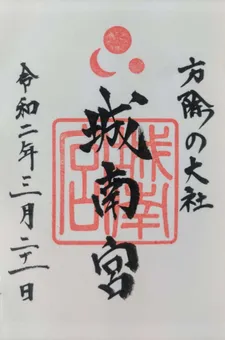 方除の大社
城南宮
城南宮印
令和二年三月二十一日